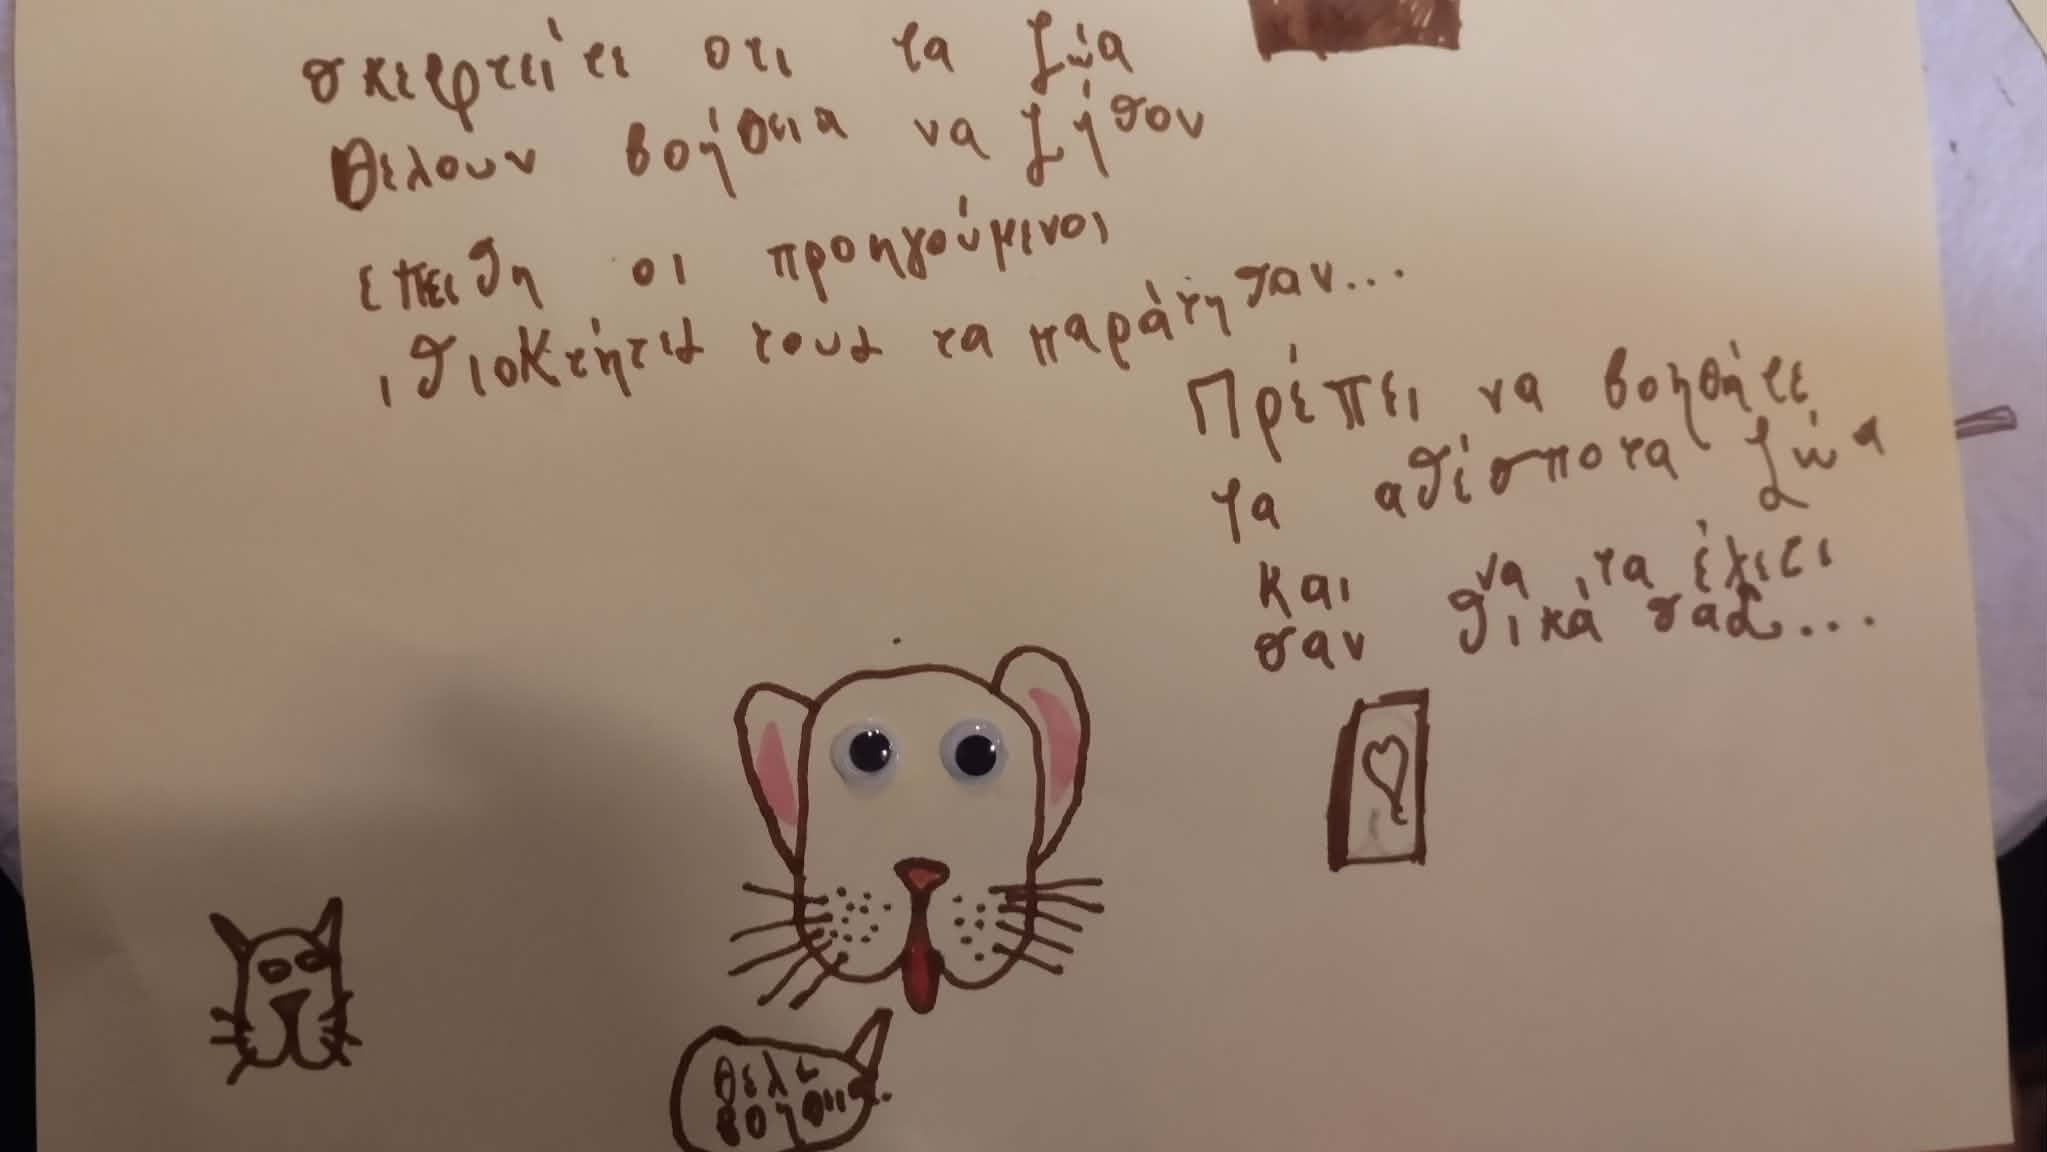 σκεφτείτε οτι τα ζώα
θελουν βοήθεια να ζήσον
επειδη οι προηγούμενοι
ιδιοκτήτες τους τα παράτησαν...
Πρέπει να βοηθήτε
τα αδέσποτα ζώα
και να τα έχετε
σαν δικά σας...
θελω
βοήθεια..